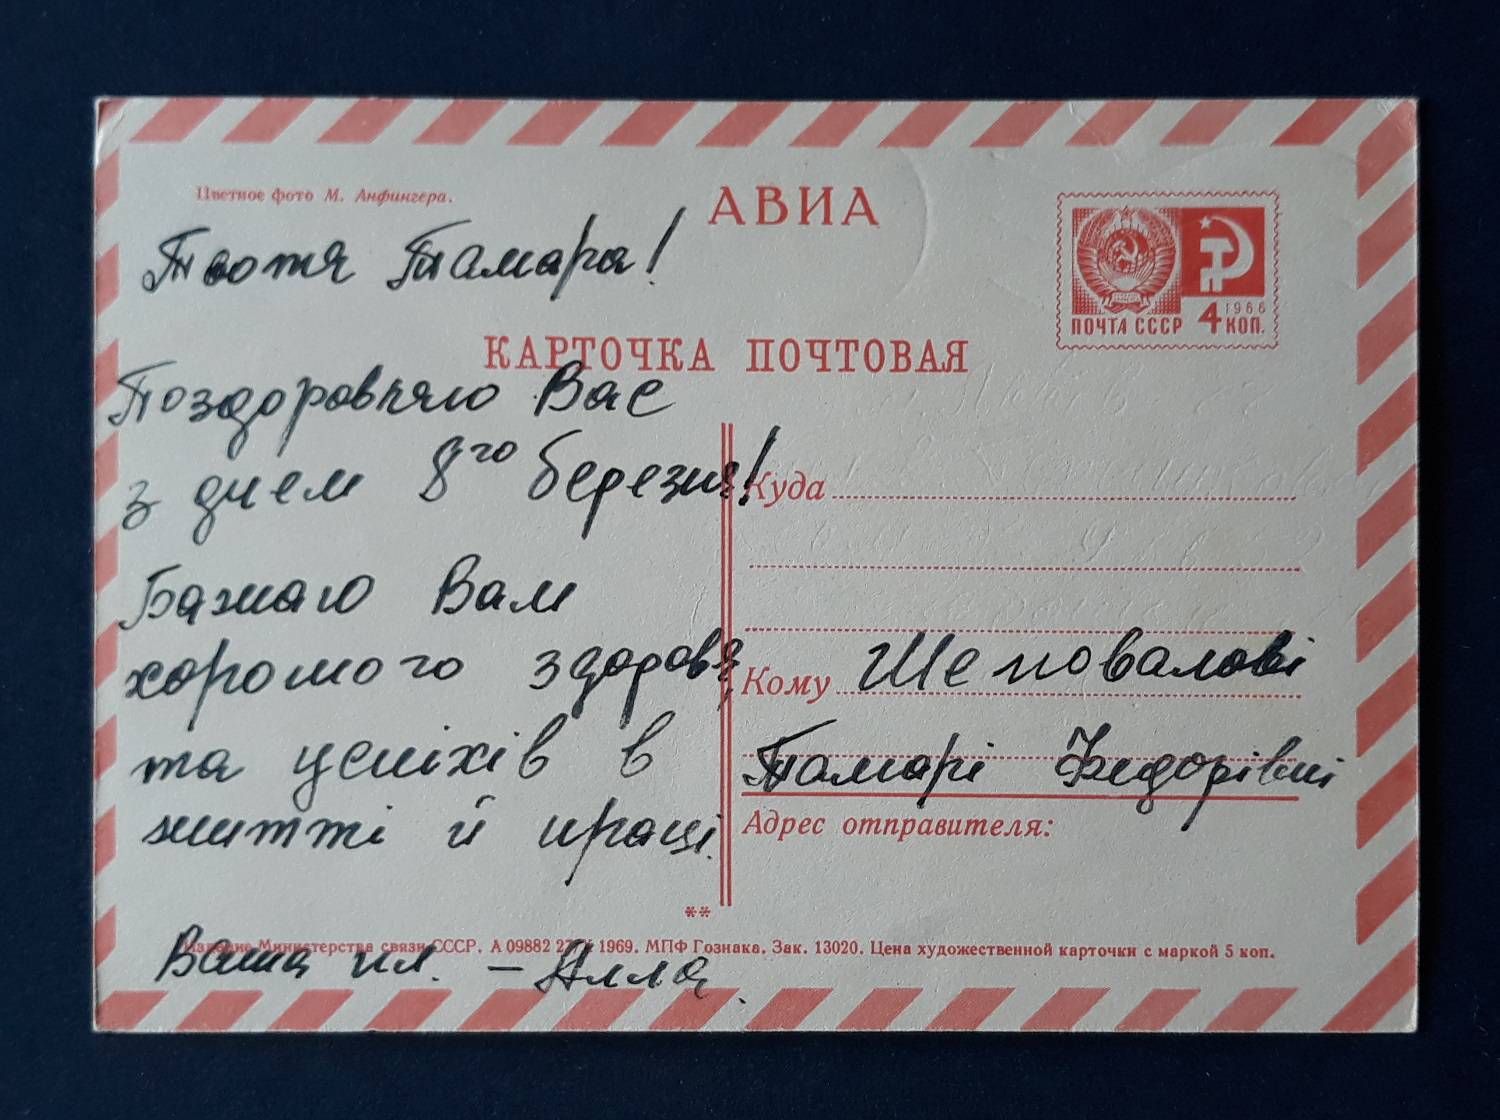 Цветное фото М. Анфингера.
АВИА
Тьотя Тамара!
ПОЧТА СССР 4 КОП. 1966
КАРТОЧКА ПОЧТОВАЯ
Поздоровляю Вас
з днем 8го березня!
Бажаю Вам
хорошого здоров'я,
та успіхів в
житті й праці.
Ваша пл. – Алла.
Куда
Кому Шеповалові
Тамарі Федорівні
Адрес отправителя:
**
Издание Министерства связи СССР. А 09882 1969. МПФ Гознака. Зак. 13020. Цена художественной карточки с маркой 5 коп.